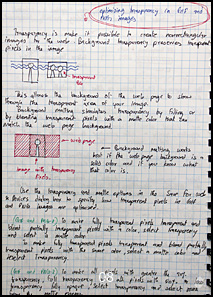 optimizing transparency in GIF and
PNG images
Transparency is make it possible to create nonrectangular
images for the web. Background transparency preserves transparent
pixels in the image
transparent
This allows the background of the web page to show
through the transparent areas of your image.
Background matting simulates transparency by filling or
by blending transparent pixels with a matte color that
match the web page background
web page
Background matting works
best if the web page background is a
solid color and if you know what
that color is.
image with transparent
pixels.
Use the transparency and matte options in the Save for web
& devices dialog box to specify how transparent pixels in GIF
and PNG images are optimized.
(GIF and PNG-8) To make fully transparent pixels transparent and
blend partially transparent pixels with a color, select transparency
and select a matte color
To make fully transparent pixels transparent and blend partially
transparent pixels with the same color, select a matte color
deselect Transparency
(GIF and PNG-8) To make all pixels with greater the 50%
transparency fully transparent and all pixels with 50% or less
transparency fully opaque, select transparency and select
matte menu